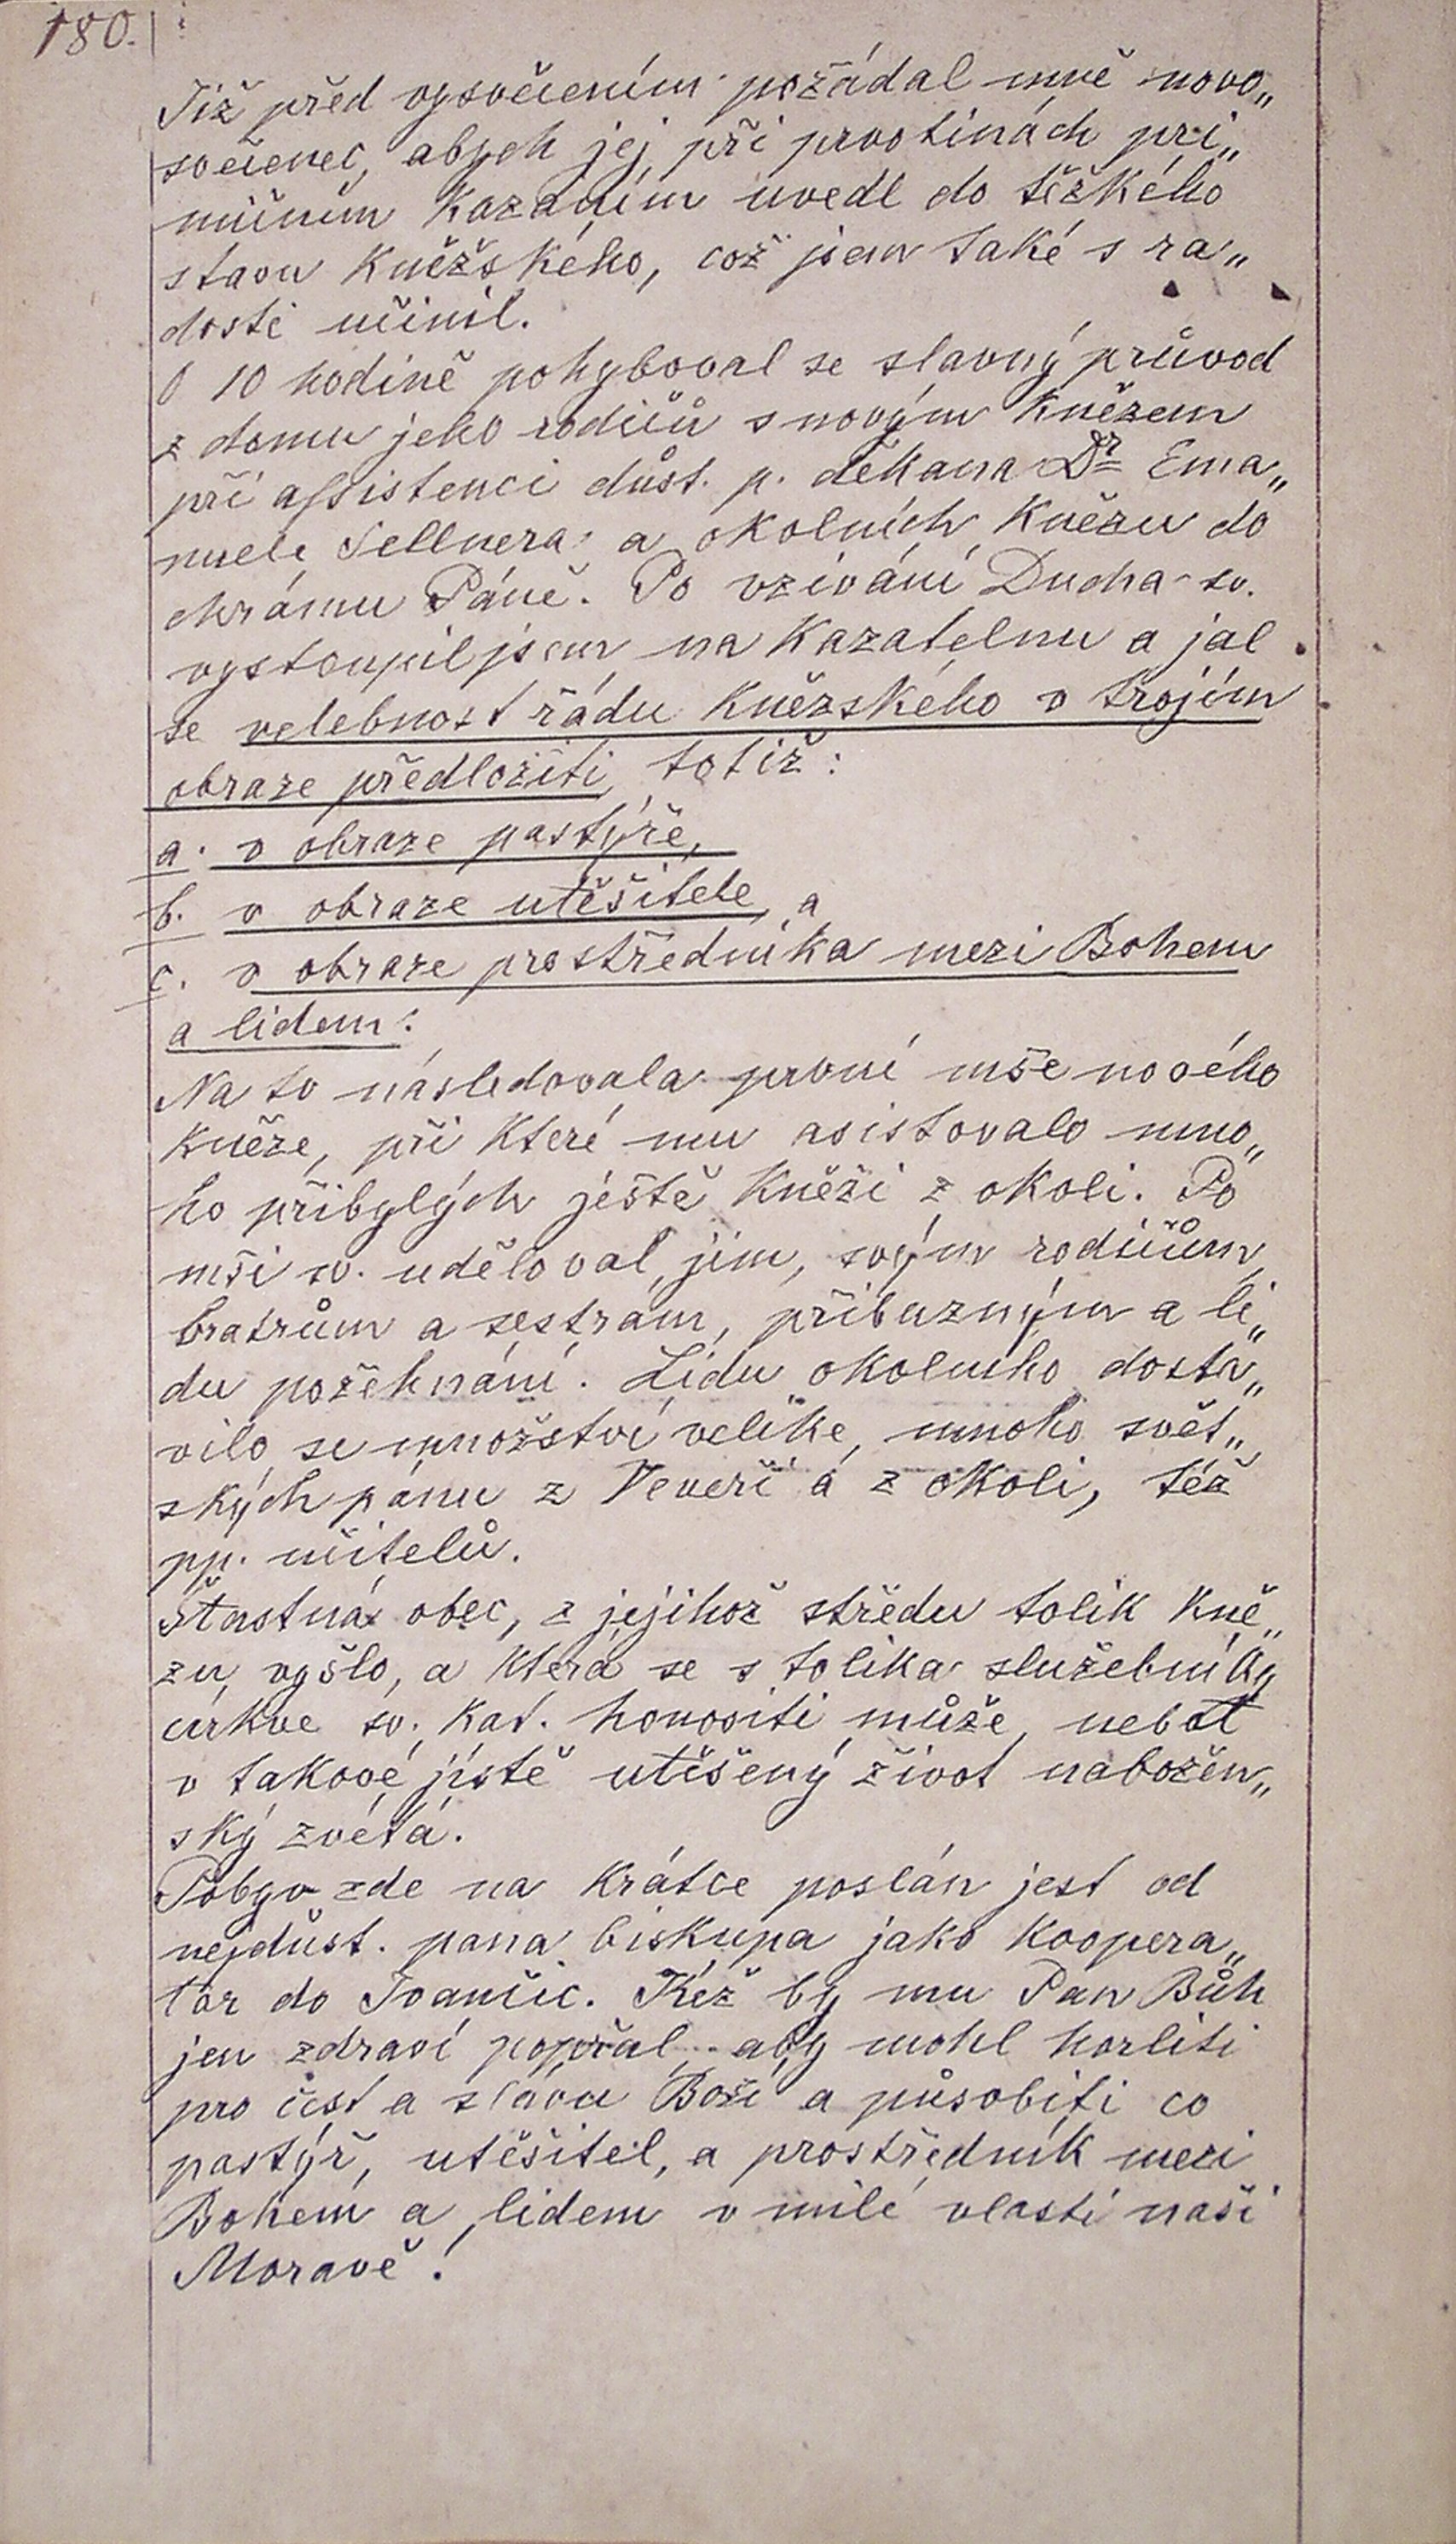 180.
Již před vysvěcením požádal mně novo„
svěcenec, abych jej při prvotinách pri„
mičním kazaním uvedl do těžkého
stavu kněžského, což jsem také s ra„
dosti učinil.
O 10 hodině pohyboval se slavný průvod
z domu jeho rodičů s novým knězem
při assistenci důst. p. děkana Dr Ema„
nuele Sellnera a okolních knězu do
chrámu Páně. Po vzívání Ducha sv.
vystoupil jsem na kazatelnu a jal
se velebnost řádu kněžského v trojím
obraze předložiti, totiž:
a. v obraze pastýře,
b. v obraze utěšitele, a
c. v obraze prostředníka mezi Bohem
a lidem:
Na to následovala první mše nového
kněze, při které mu asistovalo mno„
ho přibylých ještě kněži z okoli. Po
mši sv. uděloval jim, svým rodičům,
bratrům a sestrám, příbuzným a li„
du požehnání. Lidu okolního dosta„
vilo se množství veliké, mnoho svět„
ských pánu z Veveří a z okoli, též
pp. učitelů.
Šťastná obec, z jejihož středu tolik kně„
zu vyšlo, a která se s tolika služebníky
církve sv. kat. honositi může, neboť
v takové jistě utěšený život nábožen„
ský zvétá.
Pobyv zde na krátce poslán jest od
nejdůst. pana biskupa jako koopera„
tor do Ivančic. Kéž by mu Pan Bůh
jen zdraví popřál aby mohl horliti
pro čest a slávu Boží a působiti co
pastýř, utěšitel, a prostředník mezi
Bohem a lidem v milé vlasti naší
Moravě!